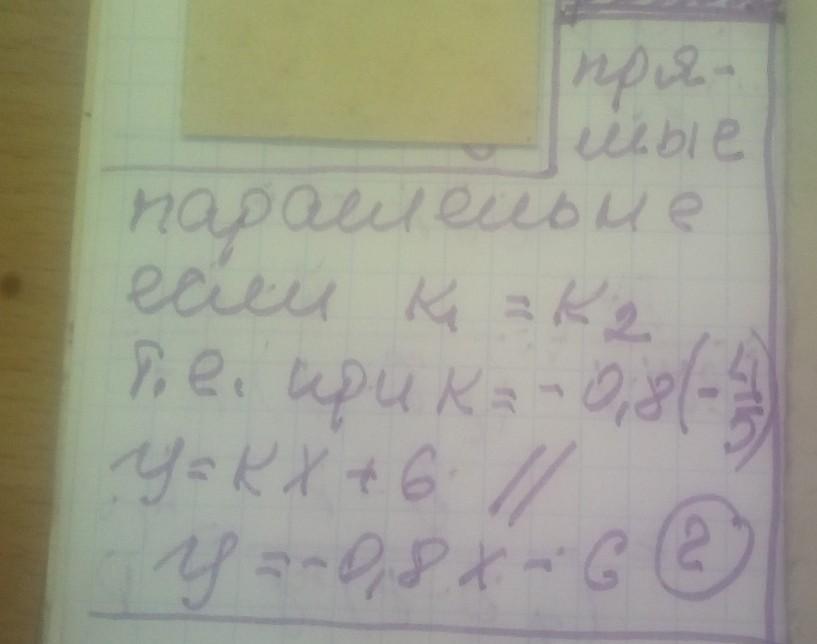 пря-
мые
параллельне
если к₁ = к₂
т.е. при к = - 0,8 (- 4/5)
y = кx + 6 //
y = -0,8 x - 6 (2)